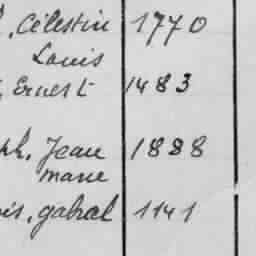 , Célestin 1770
Louis
, Ernest 1483
ph, Jean 1888
marie
is, gabral 1141